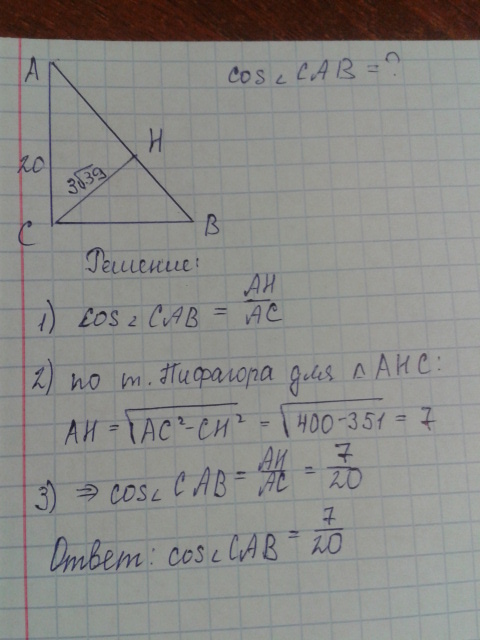 A
cos∠CAB = ?
H
20
3√39
C
B
Решение:
1) cos∠CAB = AH/AC
2) по т. Пифагора для △AHC:
AH = √(AC²-CH²) = √(400-351) = 7
3) ⇒ cos∠CAB = AH/AC = 7/20
Ответ: cos∠CAB = 7/20